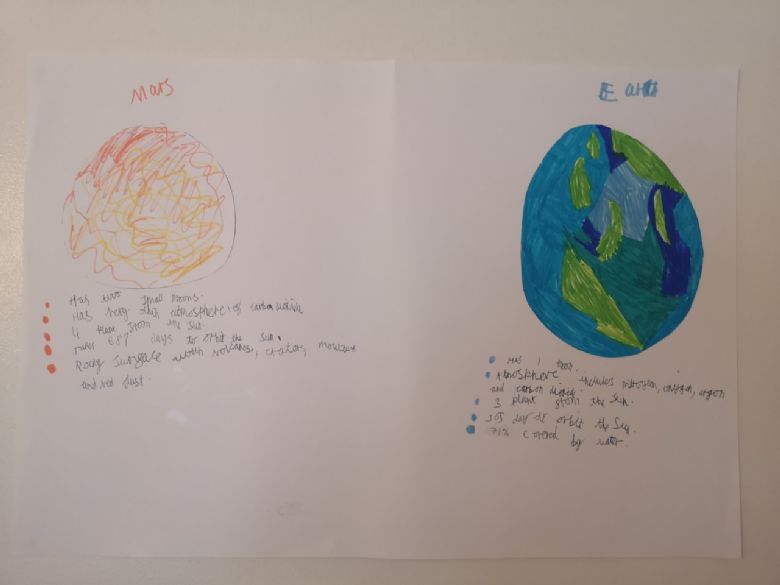 Mars
Has two small moons.
Has very thin atmosphere of carbon
4 from the sun.
687 days to orbit the sun.
Rocky surface with volcanos, crators,
and red dust.
Earth
Has 1 moon.
Atmosphere includes nitrogen, oxygen, argon
and carbon dioxide
3 planet from the sun.
365 day to orbit the sun.
71% covered by water.